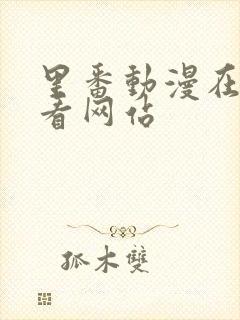 里番動漫在
看网站
孤木雙